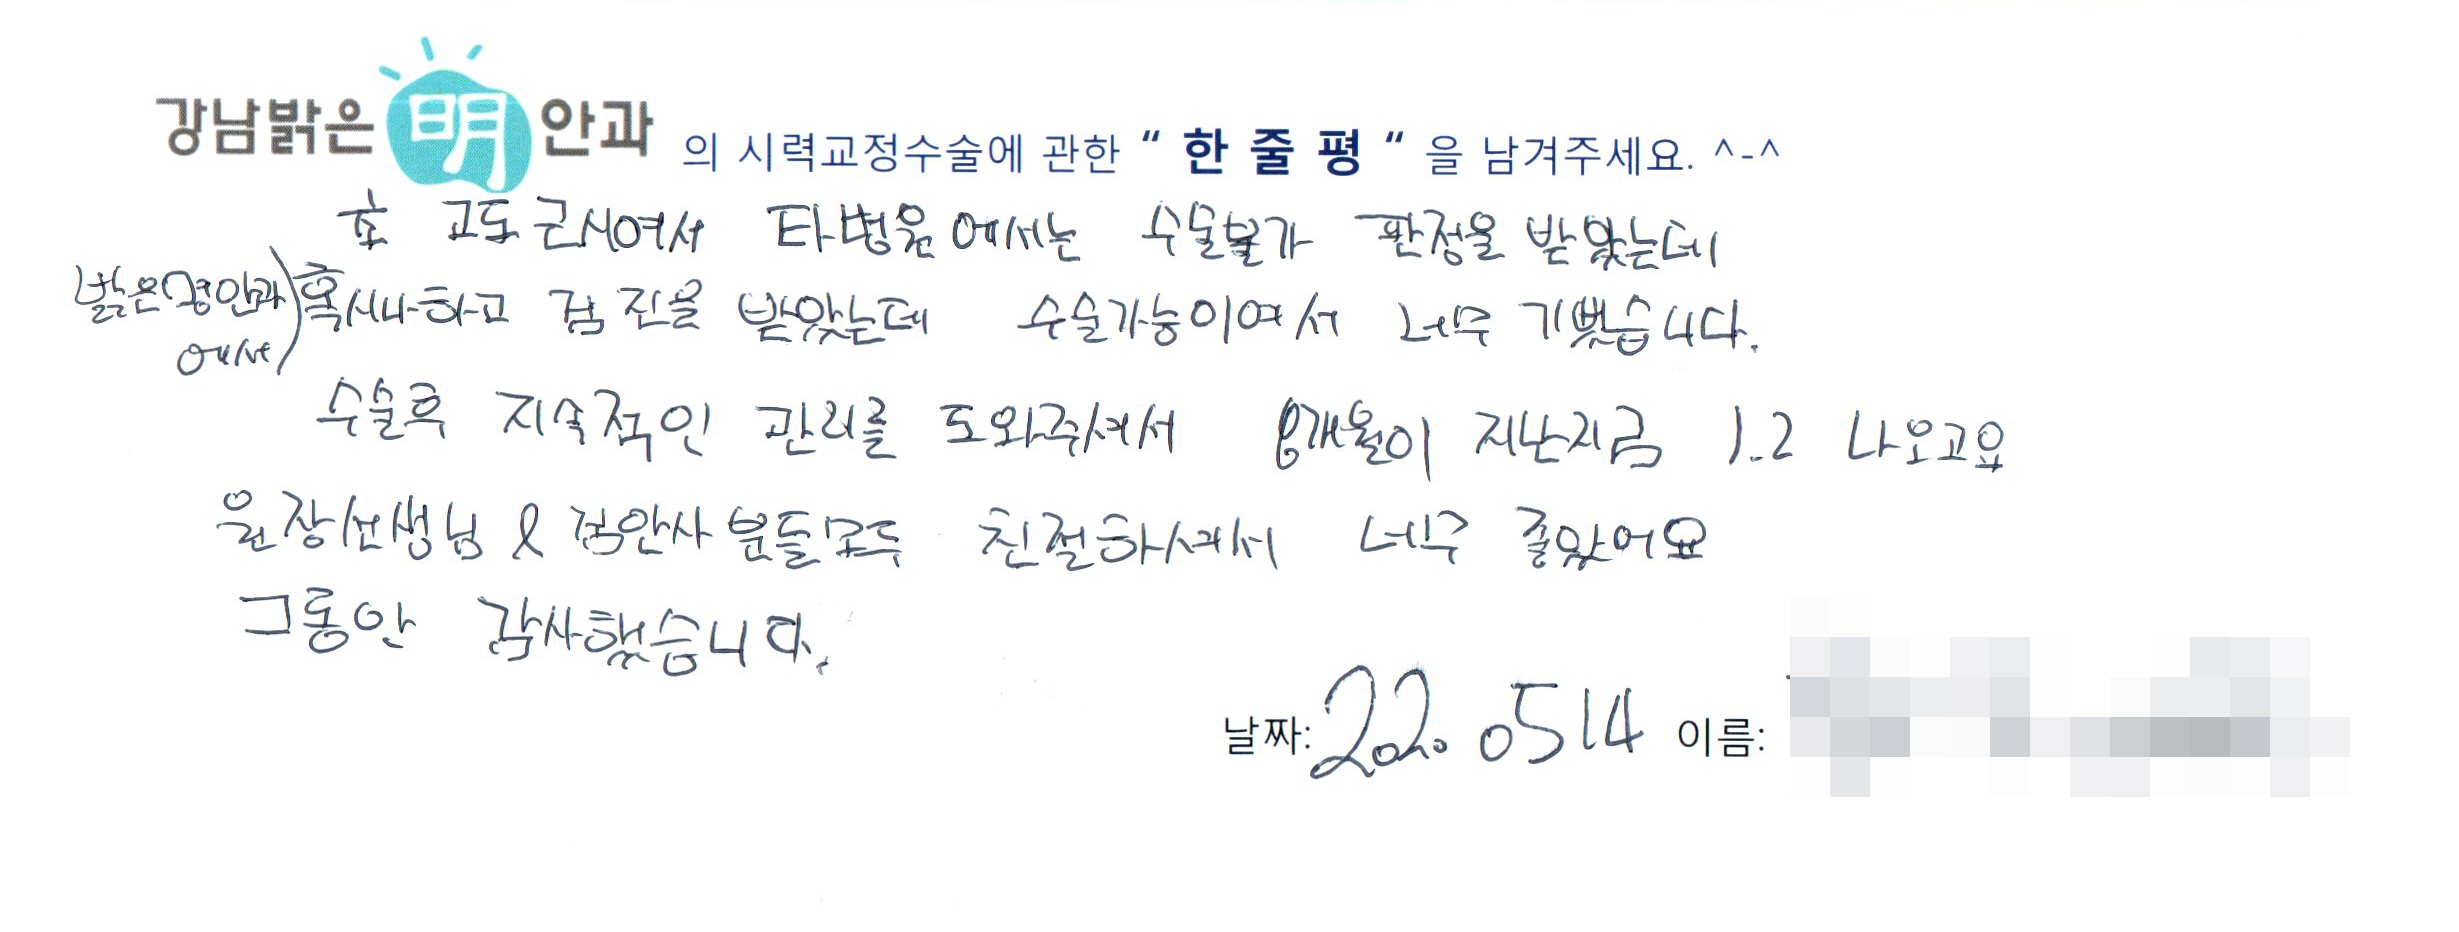 강남밝은明안과 의 시력교정수술에 관한 “ 한 줄 평 “ 을 남겨주세요. ^-^
초 고도 근시여서 타병원에서는 수술불가 판정을 받았는데
밝은명안과에서) 혹시나하고 검진을 받았는데 수술가능이여서 너무 기뻤습니다.
수술후 지속적인 관리를 도와주셔서 6개월이 지난지금 1.2 나오고요
원장선생님 & 검안사분들모두 친절하셔서 너무 좋았어요
그동안 감사했습니다.
날짜: 22. 0514 이름: